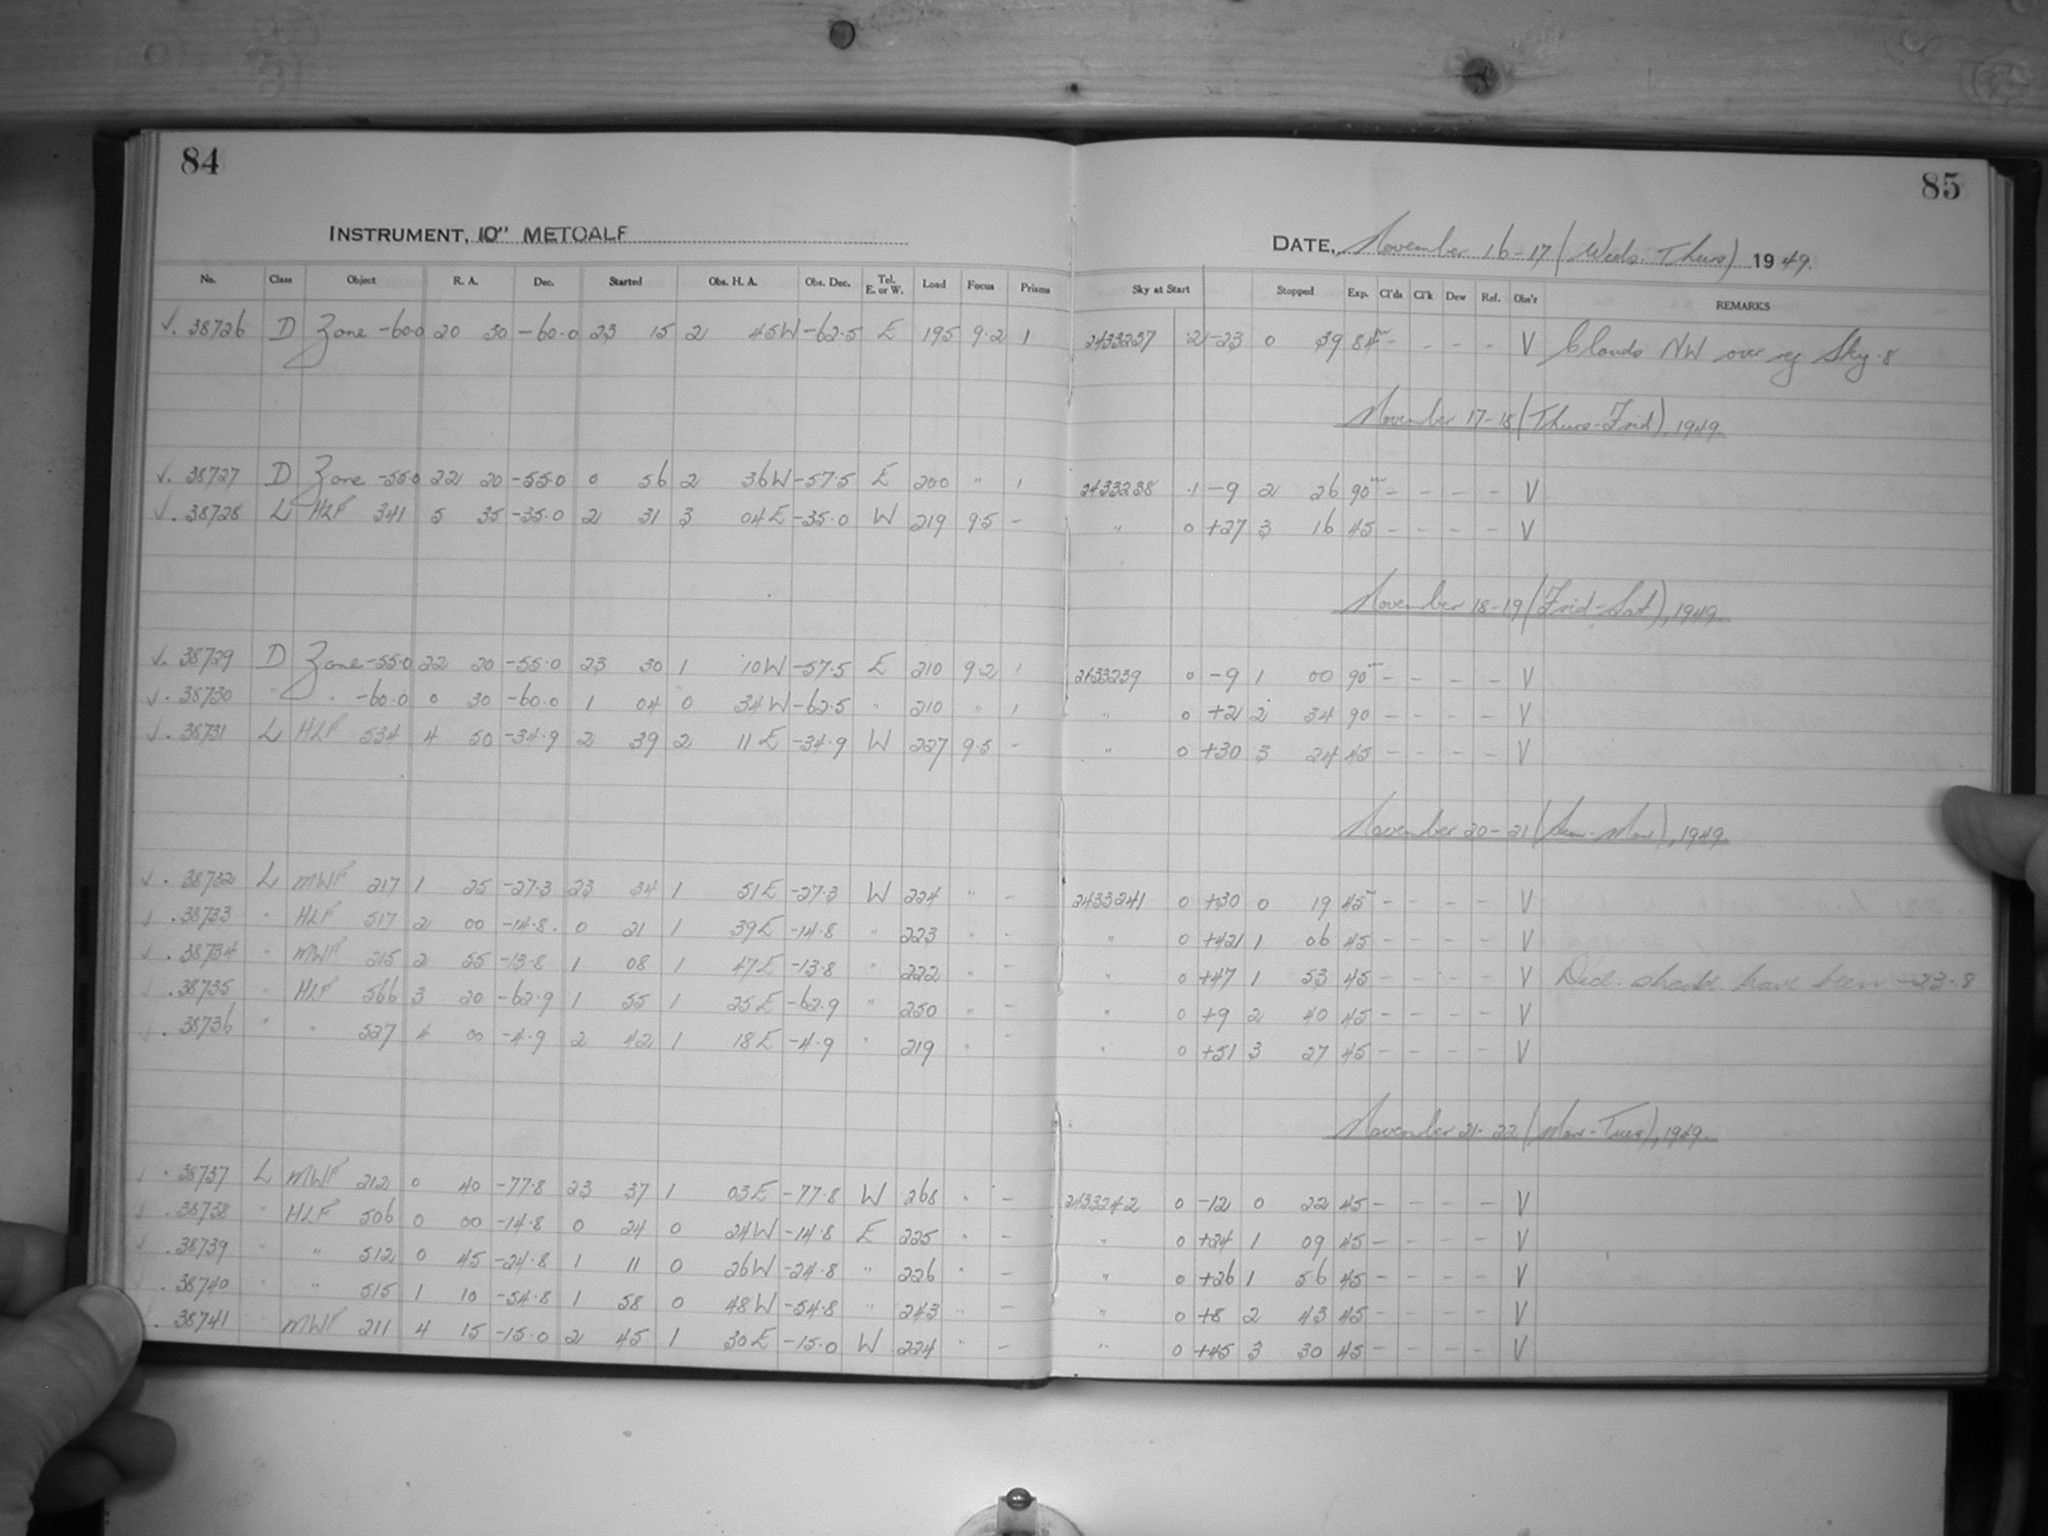 84
INSTRUMENT, 10" METCALF
No. Class Object R. A. Dec. Started Obs. H. A. Obs. Dec. Tel. E. or W. Load Focus Prisms
√. 38726 D Zone -60.0 20 30 -60.0 23 15 2 45W -62.5 E 195 9.2 1
√. 38727 D Zone -55.0 22 20 -55.0 0 56 2 36W -57.5 E 200 " 1
√. 38728 L HLF 341 5 35 -35.0 2 31 3 04E -35.0 W 219 9.5 -
√. 38729 D Zone -55.0 22 20 -55.0 23 30 1 10W -57.5 E 210 9.2 1
√. 38730 " " -60.0 0 30 -60.0 1 04 0 34W -62.5 " 210 " 1
√. 38731 L HLF 534 4 50 -34.9 2 39 2 11E -34.9 W 227 9.5 -
√. 38732 L MWF 217 1 25 -27.3 23 34 1 51E -27.3 W 224 " -
√. 38733 " HLF 517 2 00 -14.8 0 21 1 39E -14.8 " 223 " -
√. 38734 " MWF 215 2 55 -13.8 1 08 1 47E -13.8 " 222 " -
√. 38735 " HLF 566 3 20 -62.9 1 55 1 25E -62.9 " 250 " -
√. 38736 " " 527 4 00 -4.9 2 42 1 18E -4.9 " 219 " -
√. 38737 L MWF 212 0 40 -77.8 23 37 1 03E -77.8 W 268 " -
√. 38738 " HLF 506 0 00 -14.8 0 24 0 24W -14.8 E 225 " -
√. 38739 " " 512 0 45 -24.8 1 11 0 26W -24.8 " 226 " -
√. 38740 " " 515 1 10 -54.8 1 58 0 48W -54.8 " 243 " -
√. 38741 " MWF 211 4 15 -15.0 2 45 1 30E -15.0 W 224 " -
85
DATE, November 16-17 (Weds-Thurs) 1949.
Sky at Start Stopped Exp. Cl'ds Cl'k Dew Ref. Obs'r REMARKS
2433237 .2 -23 0 39 84m - - - - V Clouds NW over reg Sky .8
November 17-18 (Thurs-Frid), 1949.
2433238 .1 -9 2 26 90m - - - - V
" 0 +27 3 16 45 - - - - V
November 18-19 (Frid-Sat), 1949.
2433239 0 -9 1 00 90m - - - - V
" 0 +2 2 34 90 - - - - V
" 0 +30 3 24 45 - - - - V
November 20-21 (Sun-Mon), 1949.
2433241 0 +30 0 19 45m - - - - V
" 0 +42 1 06 45 - - - - V
" 0 +47 1 53 45 - - - - V Decl. should have been -23.8
" 0 +9 2 40 45 - - - - V
" 0 +51 3 27 45 - - - - V
November 21-22 (Mon-Tues), 1949.
2433242 0 -12 0 22 45 - - - - V
" 0 +24 1 09 45 - - - - V
" 0 +26 1 56 45 - - - - V
" 0 +8 2 43 45 - - - - V
" 0 +45 3 30 45 - - - - V